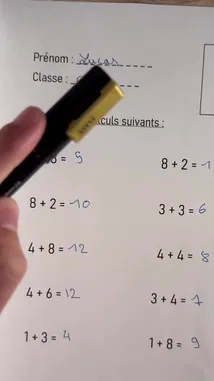 Prénom : Lucas
Classe :
culs suivants :
= 5
8 + 2 = 1
8 + 2 = 10
3 + 3 = 6
4 + 8 = 12
4 + 4 = 8
4 + 6 = 12
3 + 4 = 7
1 + 3 = 4
1 + 8 = 9